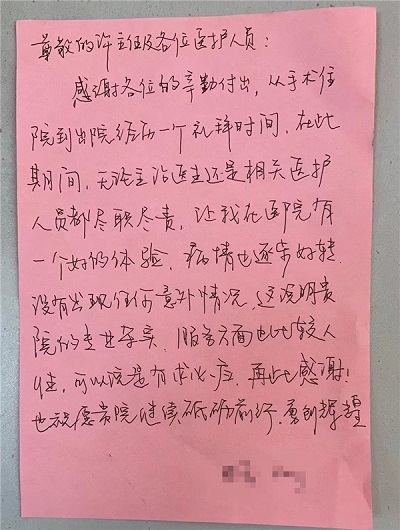 尊敬的许主任及各位医护人员：
感谢各位的辛勤付出，从手术住
院到出院经历一个礼拜时间，在此
期间，无论主治医生还是相关医护
人员都尽职尽责，让我在医院有
一个好的体验，病情也逐步好转
没有出现任何意外情况，这说明贵
院的专业夯实、服务方面也比较人
性，可以说是有求必应，再此感谢！
也祝愿贵院继续砥砺前行，勇创辉煌